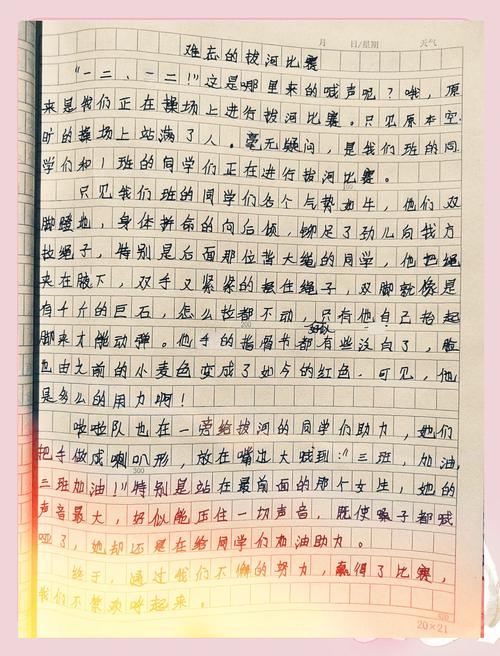 月 日/星期 天气
难忘的拔河比赛
“一二、一二!”这是哪里来的喊声呢?哦,原
来是我们正在操场上进行拔河比赛。只见原本空
旷的操场上站满了人。毫无疑问,是我们班的同
学们和1班的同学们正在进行拔河比赛。
只见我们班的同学们各个气势如牛,他们双
脚蹬地,身体拼命的向后倾,铆足了劲儿向我方
拉绳子,特别是后面那位背大绳的同学,他把绳
夹在腋下,双手又紧紧的握住绳子,双脚就像是
有千斤的巨石,怎么拉都不动,只有他自己抬起
脚来才能动弹。他手的指骨节都好似有些泛白了,脸
也由之前的小麦色变成了如今的红色。可见,他
是多么的用力啊!
啦啦队也在一旁给拔河的同学们助力,她们
把手做成喇叭形,放在嘴边大喊到:“三班,加油,
三班加油!”特别是站在最前面的那个女生,她的
声音最大,好似能压住一切声音,既使嗓子都喊
哑了,她却还是在给同学们加油助力。
终于,通过我们不懈的努力,赢得了比赛,
我们不禁欢呼起来。
100
200
300
400
20×21